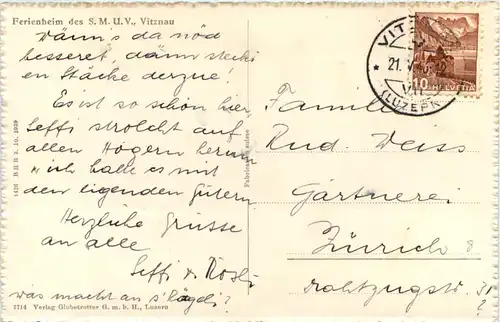 Ferienheim des S. M. U. V., Vitznau
wänn's da nöd
besseret, dänn stecki
en Stäcke derzue!
Es ist so schön hier,
Seffi strolcht auf
allen Högern herum
"ich halte es mit
den liegenden Gütern
Herzliche Grüsse
an alle
Seffi u. Rösli
was macht au s'Vägeli?
1714 Verlag Globetrotter G. m. b. H., Luzern
1426 BRB 3. 10. 1939
Fabrication suisse
VITZ
21. V
(LUZERN)
10 HELVETIA
Familie
Rud. Weiss
Gärtnerei
Zürich 8